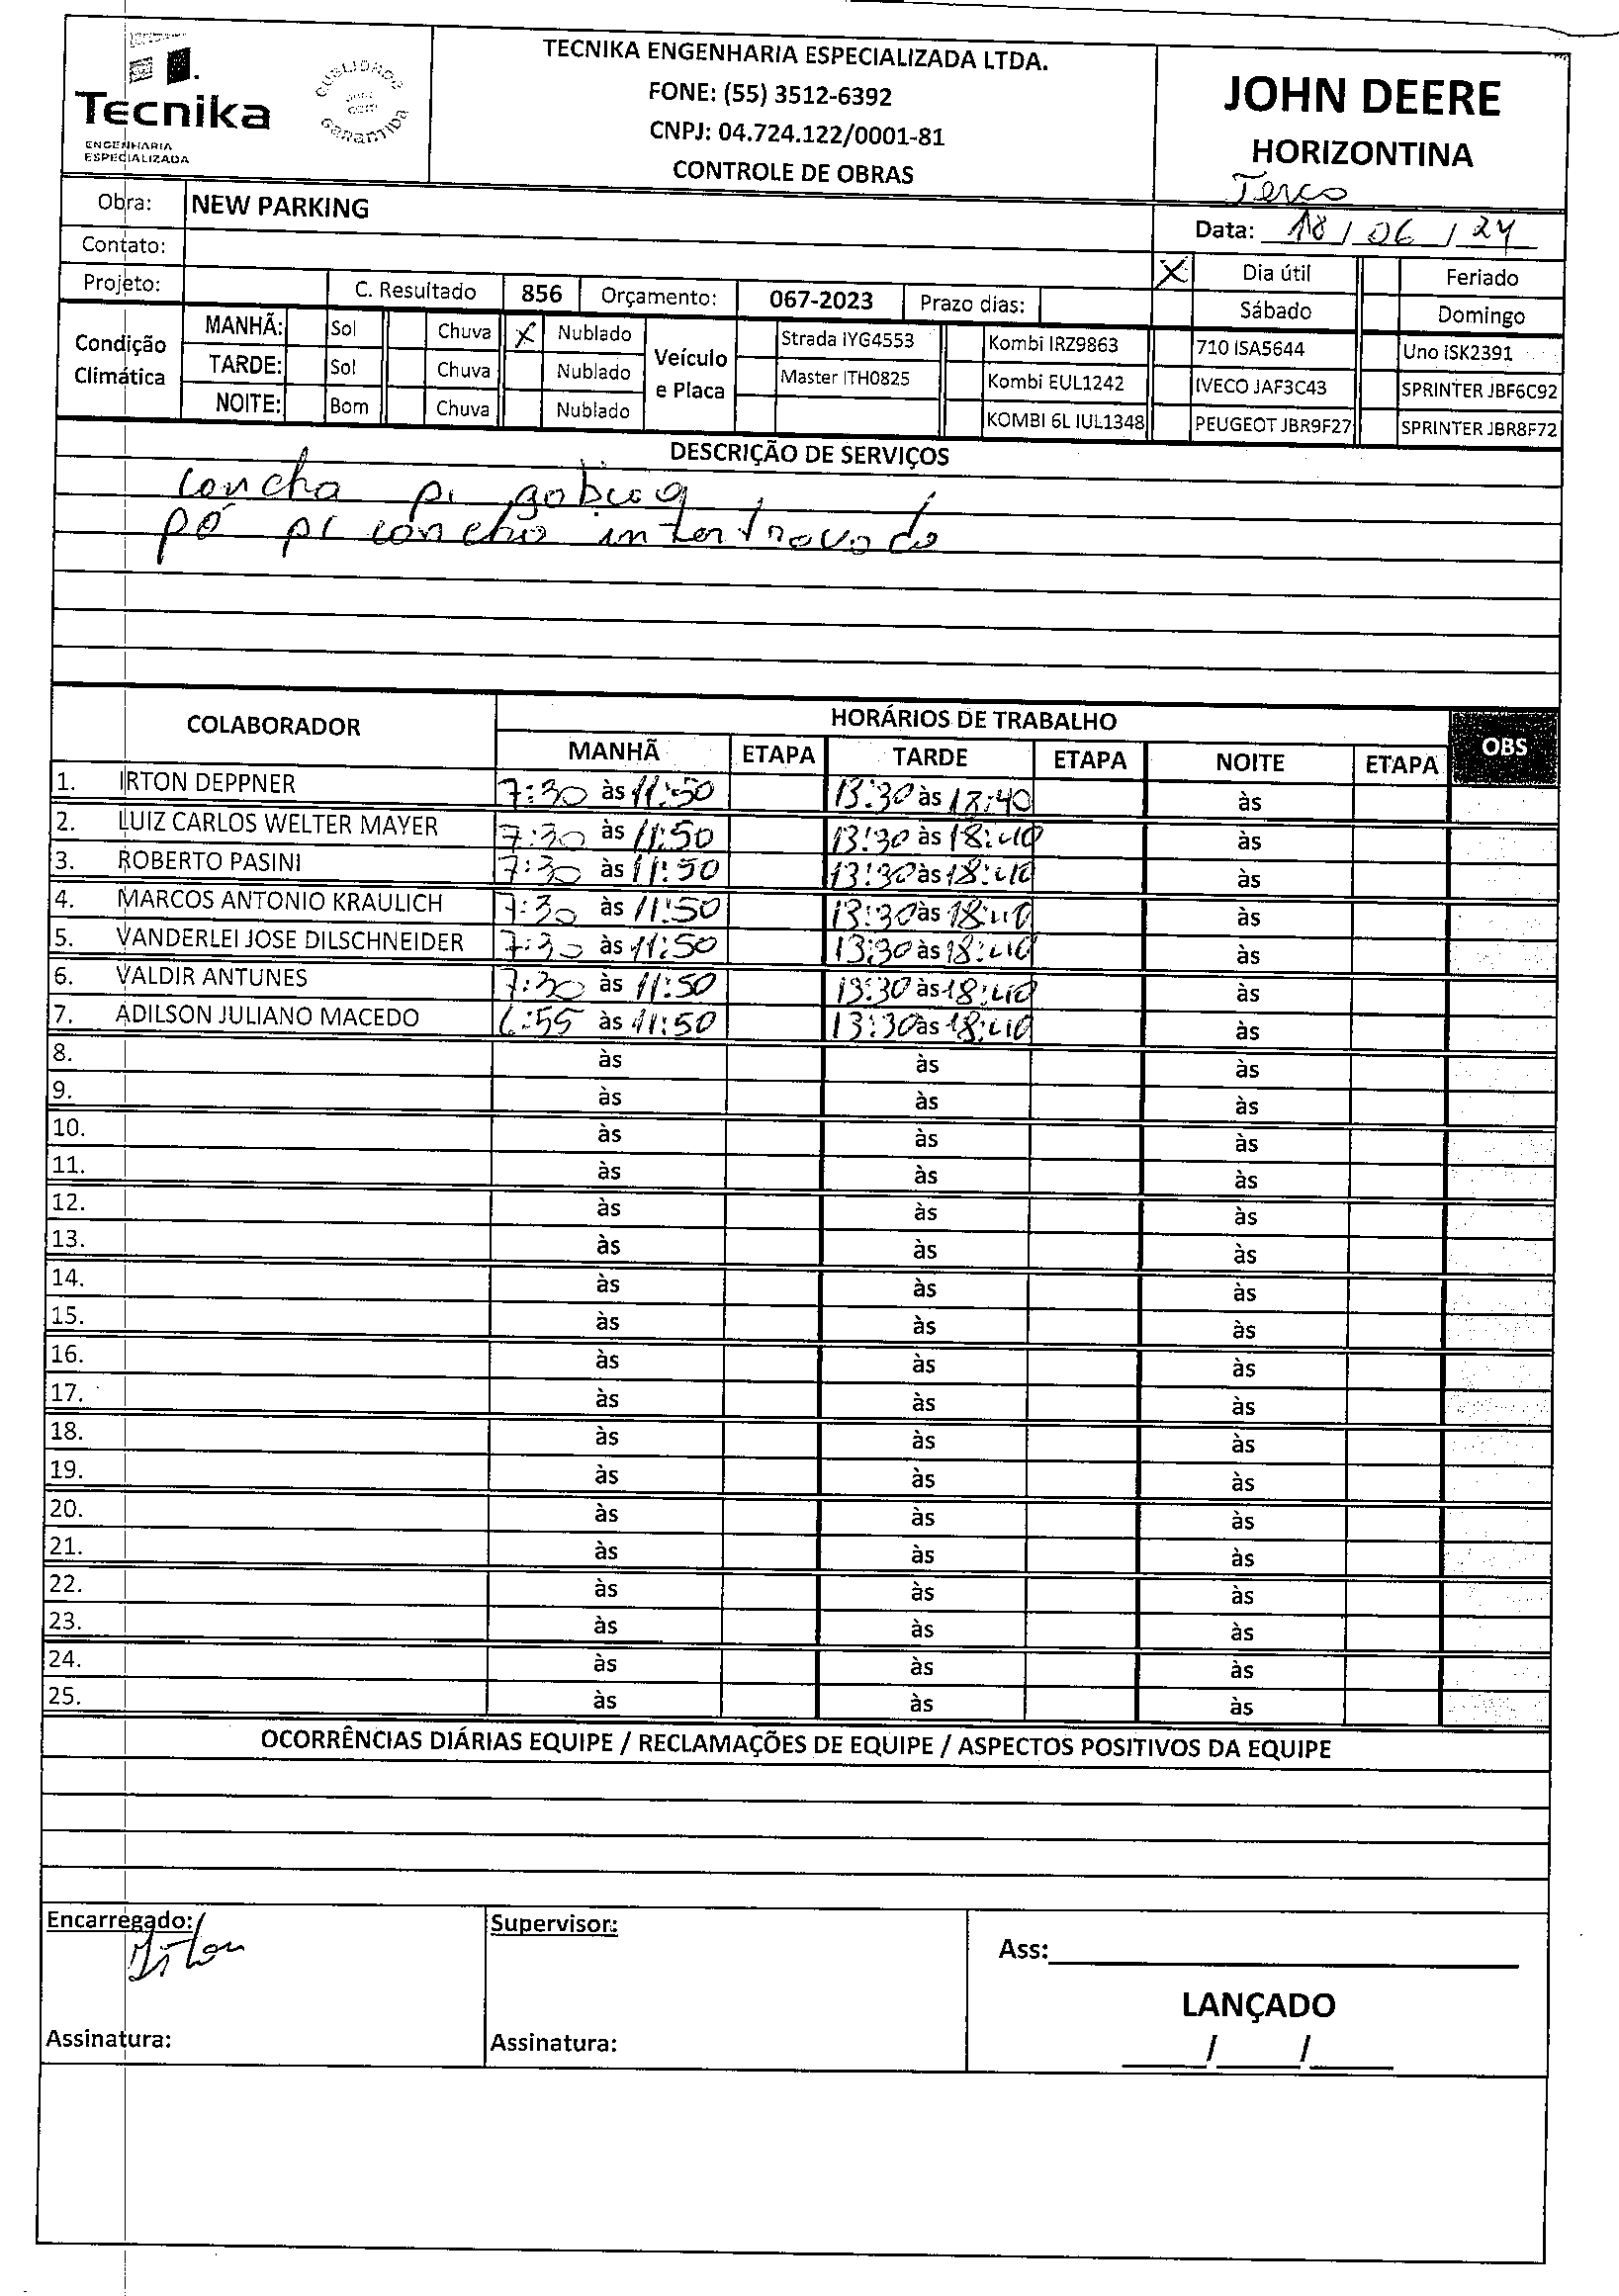 Tecnika
ENGENHARIA
ESPECIALIZADA
QUALIDADE
GARANTIDA
TECNIKA ENGENHARIA ESPECIALIZADA LTDA.
FONE: (55) 3512-6392
CNPJ: 04.724.122/0001-81
CONTROLE DE OBRAS
JOHN DEERE
HORIZONTINA
Terco
Obra: NEW PARKING
Data: 18 / 06 / 24
Contato:
X Dia útil Feriado
Projeto: C. Resultado 856 Orçamento: 067-2023 Prazo dias: Sábado Domingo
Condição Climática
MANHÃ: Sol Chuva X Nublado
TARDE: Sol Chuva Nublado
NOITE: Bom Chuva Nublado
Veículo e Placa
Strada IYG4553 Kombi IRZ9863 710 ISA5644 Uno ISK2391
Master ITH0825 Kombi EUL1242 IVECO JAF3C43 SPRINTER JBF6C92
KOMBI 6L IUL1348 PEUGEOT JBR9F27 SPRINTER JBR8F72
DESCRIÇÃO DE SERVIÇOS
concha p/
pó p/ concho intertrovado
COLABORADOR HORÁRIOS DE TRABALHO OBS
MANHÃ ETAPA TARDE ETAPA NOITE ETAPA
1. IRTON DEPPNER 7:30 às 11:50 13:30 às 18:40 às
2. LUIZ CARLOS WELTER MAYER 7:30 às 11:50 13:30 às 18:40 às
3. ROBERTO PASINI 7:30 às 11:50 13:30 às 18:40 às
4. MARCOS ANTONIO KRAULICH 7:30 às 11:50 13:30 às 18:40 às
5. VANDERLEI JOSE DILSCHNEIDER 7:30 às 11:50 13:30 às 18:40 às
6. VALDIR ANTUNES 7:30 às 11:50 13:30 às 18:40 às
7. ADILSON JULIANO MACEDO 6:55 às 11:50 13:30 às 18:40 às
8. às às às
9. às às às
10. às às às
11. às às às
12. às às às
13. às às às
14. às às às
15. às às às
16. às às às
17. às às às
18. às às às
19. às às às
20. às às às
21. às às às
22. às às às
23. às às às
24. às às às
25. às às às
OCORRÊNCIAS DIÁRIAS EQUIPE / RECLAMAÇÕES DE EQUIPE / ASPECTOS POSITIVOS DA EQUIPE
Encarregado: Irton
Supervisor:
Ass:
LANÇADO
Assinatura:
Assinatura:
/ /